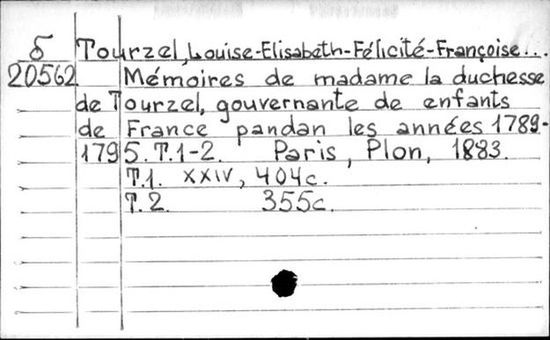 б Tourzel, Louise-Elisabeth-Félicité-Françoise...
20562 Mémoires de madame la duchesse
de Tourzel, gouvernante de enfants
de France pandan les années 1789-
1795. T.1-2. Paris, Plon, 1883.
T.1. XXIV, 404c.
T.2. 355c.